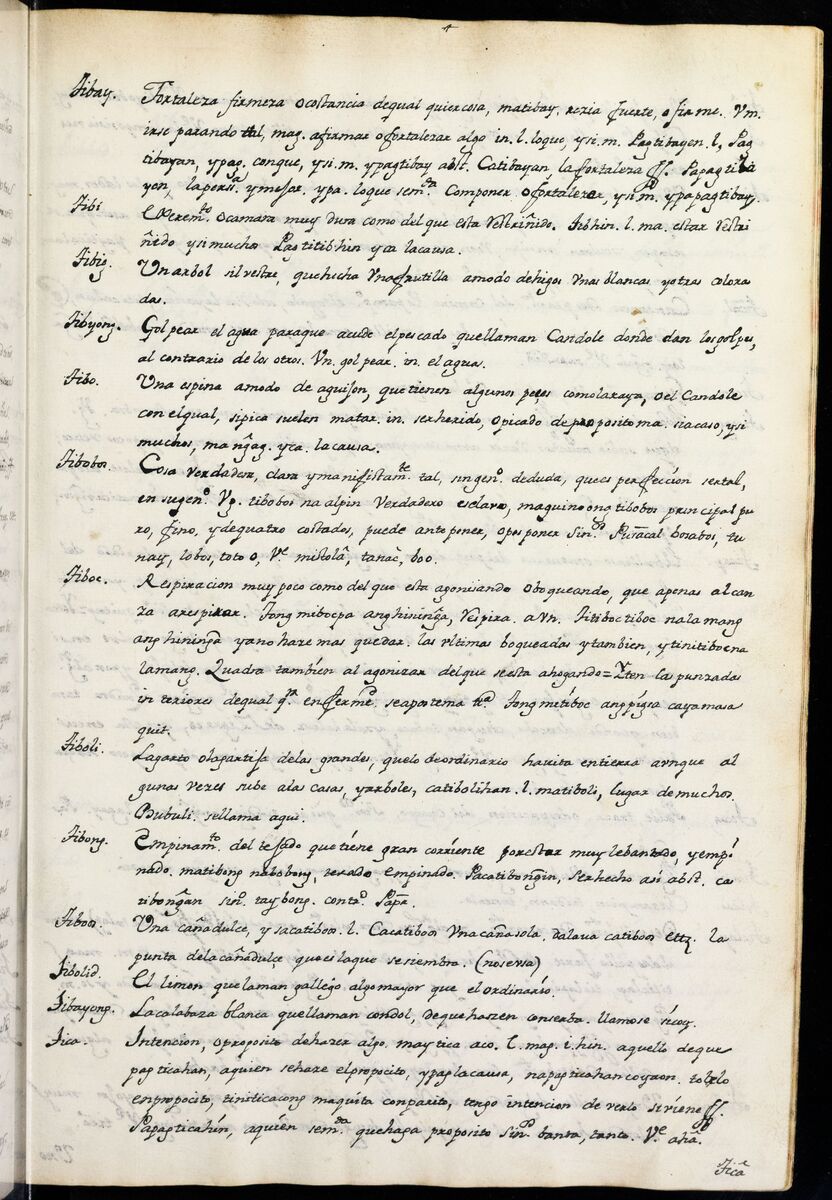 Tibay. Fortaleza firmeza ocostancia dequal quier cosa, matibay, rezia fuerte, o firme. Vm.
irse parando tal, mag. afirmar ofortalezar algo in. l. loque, ysi. m. Pagtibayen. l, Pag
tibayan, ypag. conque, ysi. m. ypagtibay abst. Catibayan, la fortaleza ff. Papagtiba
yen, lapersa. ymesar. ypa. loque semda. Componer ofortalezer, ysi. m. ypapagtibay.
Tibi Excremto. ocamara muy dura como del que esta Vestriñido. Tibhin. l. ma. estar Vestri
ñido ysi mucho Pagtitibhin yca lacausa.
Tibig. Vn arbol silvestre, que hecha Vna frutilla amodo dehigos Vnas blancas yotras colora
das.
Tibyong. Golpear el agua paraque acude elpescado quellaman Candole donde dan losgolpes,
al contrario de los otros. Vn. golpear. in. el agua.
Tibo. Vna espina amodo de aguison, que tienen algunos peçes comolaraya, oel Candole
con elqual, sipica suelen matar. in. serherido, opicado de proposito ma. siacaso, ysi
muchos, mangag. yca. lacausa.
Tibobos. Cosa verdadera, clara ymanifistamte. tal, singeno. deduda, ques perfeccion sertal,
en sugeno. Vg. tibobos na alpin Verdadero esclavo, maguinoo na tibobos principal pu
ro, fino, ydequatro costados, puede anteponer, oposponer Sino. Puracal bosabos, tu
nay, lobos, toto o, Ve. mistola, tanac, boo.
Tiboc. Respiracion muy poco como del que esta agonisando oboqueando, que apenas alcan
za arespirar. Tongmibocpa anghininga, Vespira. avn. Titiboctiboc nala mang
ang hininga ya no haze mas quedar. las vltimas boqueadas ytambien, ytinitiboc na
lamang. Quadra tambien al agonizar delque seesta ahogando = Yten las punzadas
interiores dequal qra. enfermed. seapostema tca. Tongmitiboc ang pigsa cayamasa
quit.
Tiboli. Lagarto olagartija delas grandes, quelo deordinario havita entierra avnque al
gunas vezes sube alas casas, yarboles, catibolihan. l. matiboli, lugar demuchos.
Bubuli. sellama aqui.
Tibong. Empinamto. del tejado que tiene gran corriente porestar muy lebantado, yempi
nado. matibong nabobong, texado empinado. Pacatibongin, serhecho asi abst. ca
tibongan sino. taybong. conto. Papa.
Tiboos. Vna cañadulce, y sacatiboos. l. Cacatiboos Vnacañasola. dalava catiboos ettz. la
punta delacañadulce ques laque sesiembra. (noseusa)
Tibolid. El limon quelaman gallego algomayor que el ordinario.
Tibayong. Lacalabaza blanca quellaman condol, dequehaszen conserba. llamose sicoy.
Tica. Intencion, oproposito dehazer algo. maytica aco. l. mag. i. hin. aquello deque
pagticahan, aquien sehaze elproposito, ypag lacausa, napagticahan coyaon. tobelo
enproposito, tinitica cong maquita conparito, tengo intencion de verlo siviene ff.
Papagticahin, aquien semda. quehaga proposito Sino. banta, tanto. Ve. aha.
Tica